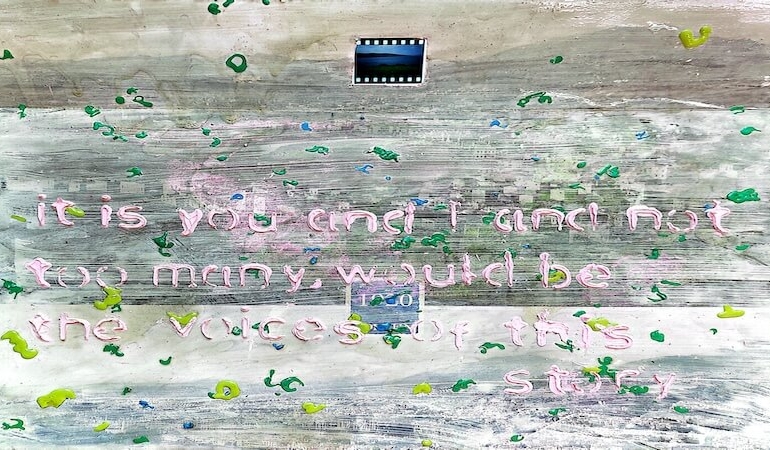 it is you and I and not
too many, would be
the voices of this
story